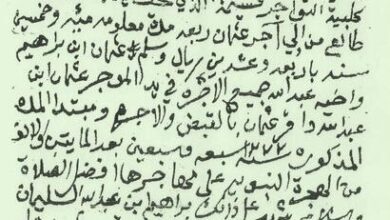 طالع من إلي آجر عثمان ربعه مدة معلومه مئه وخمسين
سنه باربعه وعشرين ريال وسلم عثمان ابن براهيم
واخيه عبدالله جميع الاجره في يد الموجر عثمان ابن
عبدالله واقر عثمان بالقبض والاجره ومبتدا المده
المذكوره سنة ١٢٧٧ سبعه وسبعين بعد المايتين والالف
من الهجرة النبويه على مهاجرها افضل الصلاة
على ذالك براهيم بن عبدالله السليمان